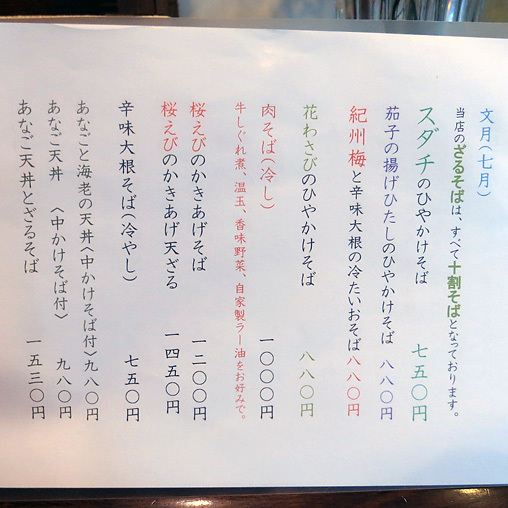 文月(七月)
当店のざるそばは、すべて十割そばとなっております。
スダチのひやかけそば 七五〇円
茄子の揚げひたしのひやかけそば 八八〇円
紀州梅と辛味大根の冷たいおそば 八八〇円
花わさびのひやかけそば 八八〇円
肉そば(冷し) 一〇〇〇円
牛しぐれ煮、温玉、香味野菜、自家製ラー油をお好みで。
桜えびのかきあげそば 一二〇〇円
桜えびのかきあげ天ざる 一四五〇円
辛味大根そば(冷やし) 七五〇円
あなごと海老の天丼〈中かけそば付〉九八〇円
あなご天丼 〈中かけそば付〉 九八〇円
あなご天丼とざるそば 一五三〇円